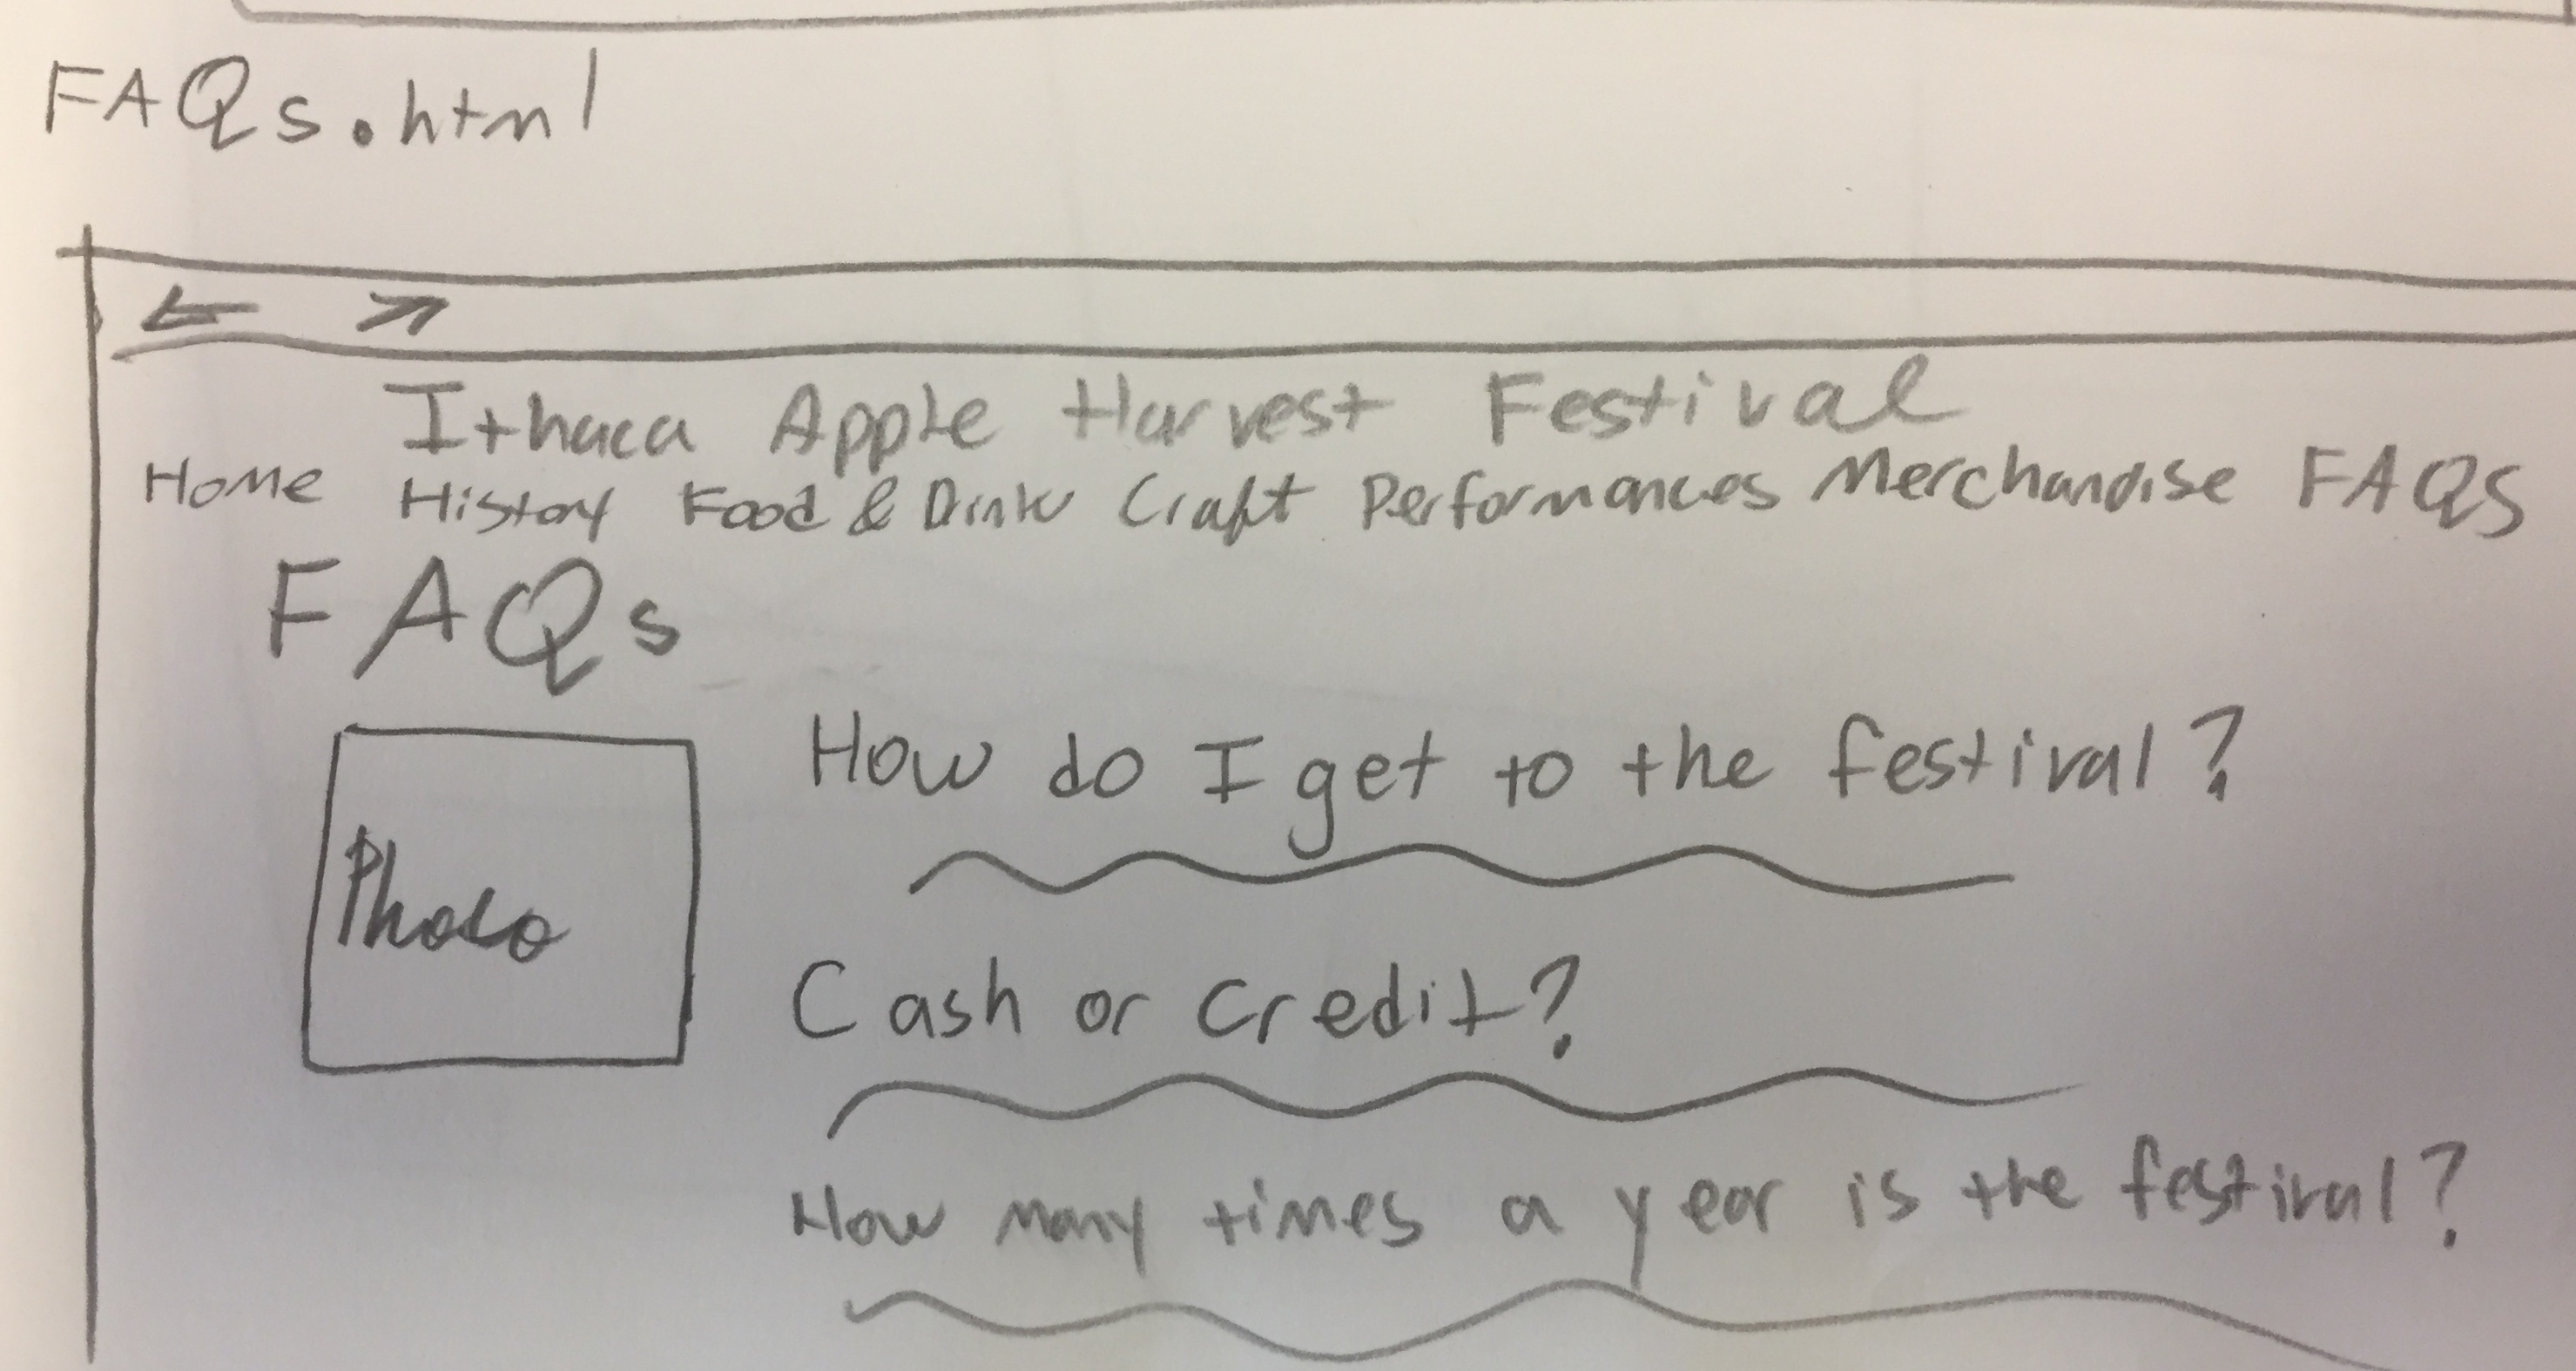 FAQs.html
Ithaca Apple Harvest Festival
Home History Food & Drink Craft Performances Merchandise FAQs
FAQs
Photo
How do I get to the festival?
Cash or credit?
How many times a year is the festival?